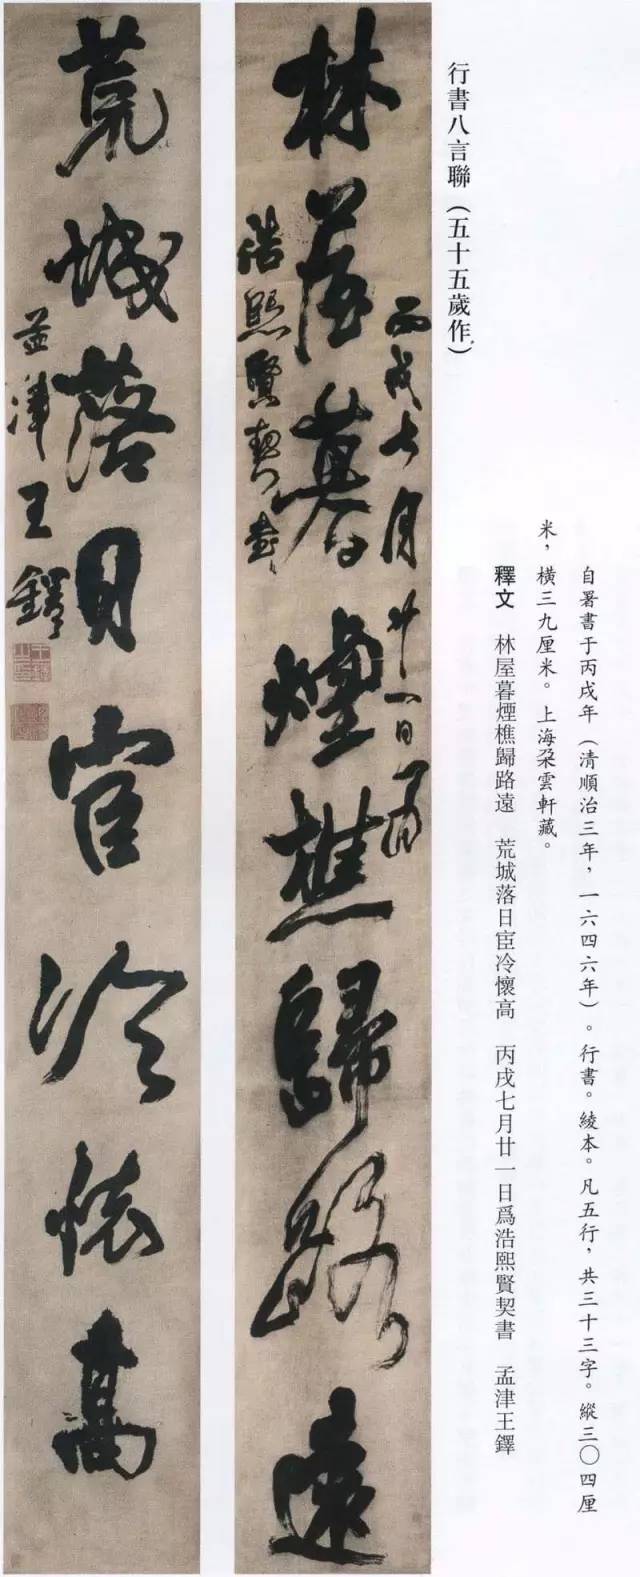 行書八言聯（五十五歲作）
自署書于丙戌年（清順治三年，一六四六年）。行書。綾本。凡五行，共三十三字。縱三〇四厘
米，橫三九厘米。上海朶雲軒藏。
釋文　林屋暮煙樵歸路遠　荒城落日宦冷懷高　丙戌七月廿一日爲浩熙賢契書　孟津王鐸
林屋暮煙樵歸路遠
丙戌七月廿一日爲
浩熙賢契書
荒城落日宦冷懷高
孟津王鐸